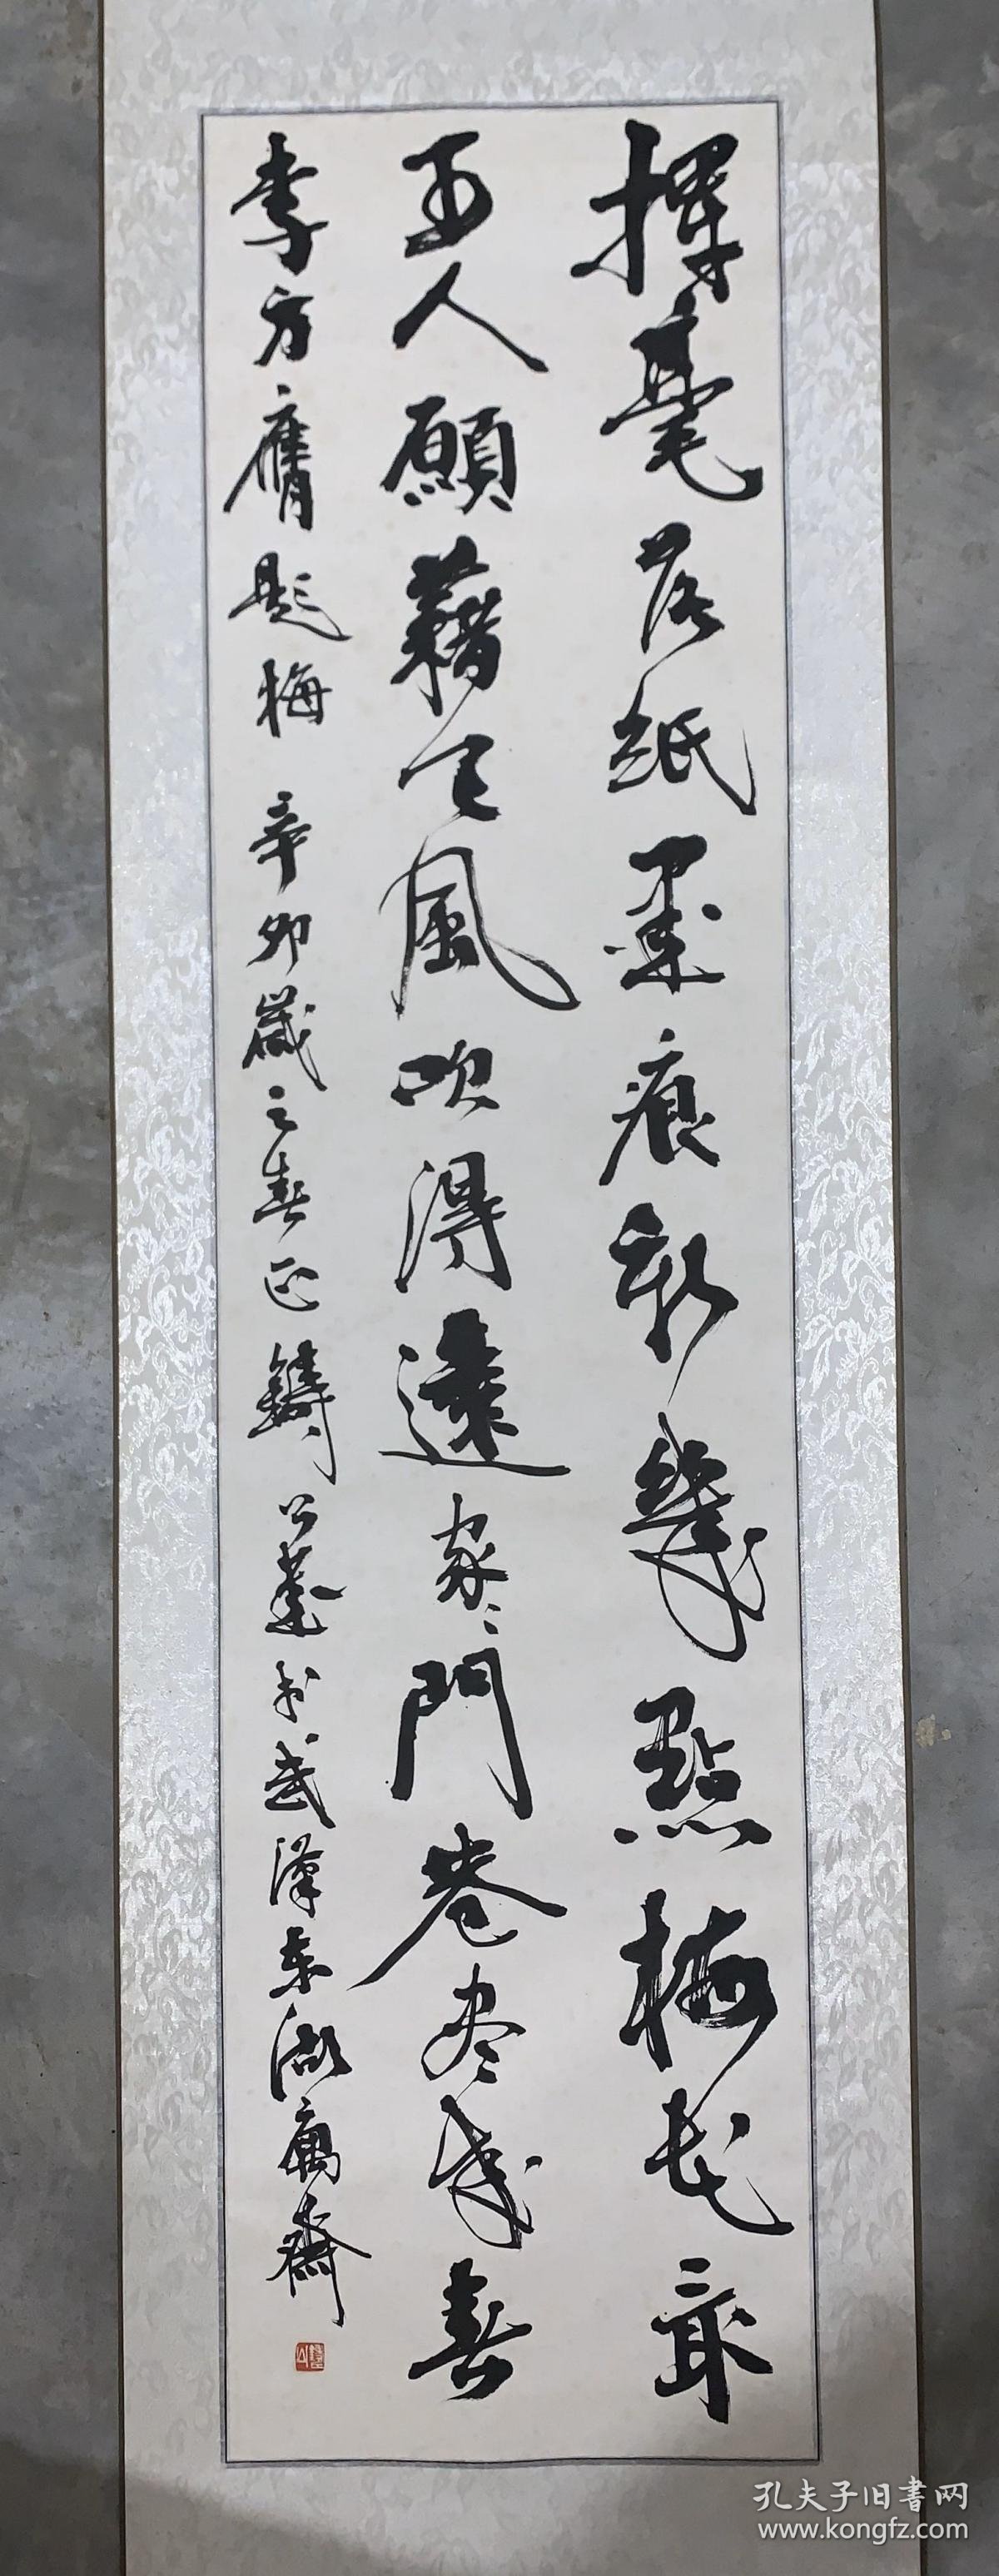 揮毫落紙墨痕新幾點梅花最
可人願藉天風吹得遠家々門巷尽成春
李方膺題梅 辛卯歲之春正鑄公書武漢東湖寓齋
孔夫子旧書网
www.kongfz.com